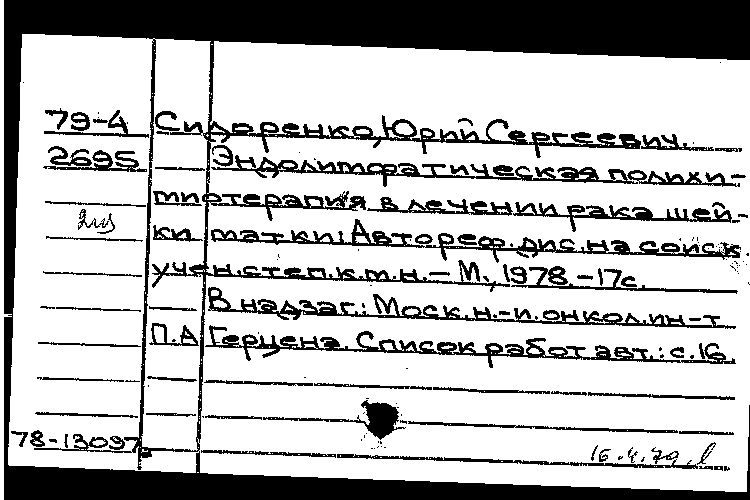 79-4 Сидоренко, Юрий Сергеевич.
2695 Эндолимфатическая полихи-
миотерапия в лечении рака шей-
ки матки: Автореф. дис. на соиск.
учен. степ. к.м.н. – М., 1978. – 17с.
В надзаг.: Моск. н.-и. онкол. ин-т
П.А. Герцена. Список работ авт.: с.16.
78-13097
16.4.79